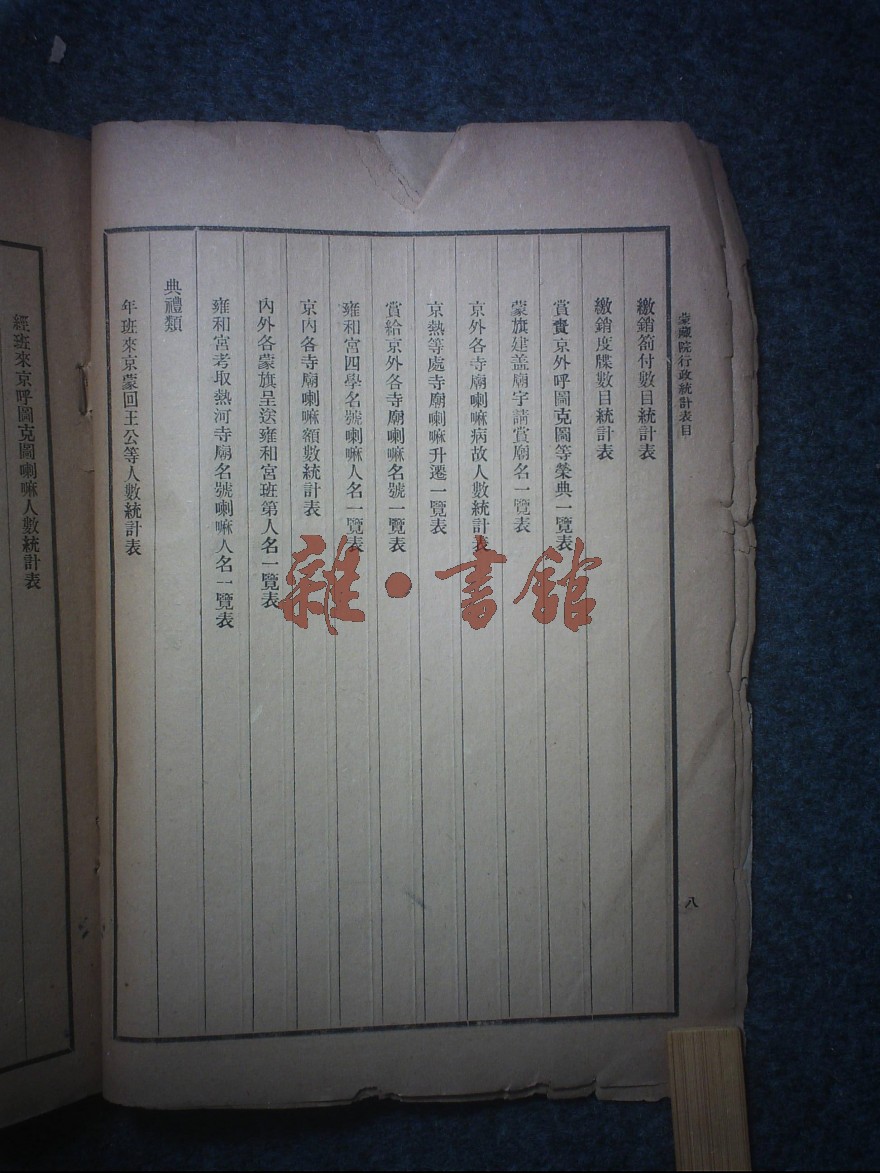 蒙藏院行政統計表目
八
繳銷劄付數目統計表
繳銷度牒數目統計表
賞賚京外呼圖克圖等榮典一覽表
蒙旗建盖廟宇請賞廟名一覽表
京外各寺廟喇嘛病故人數統計表
京熱等處寺廟喇嘛升遷一覽表
賞給京外各寺廟喇嘛名號一覽表
雍和宮四學名號喇嘛人名一覽表
京內各寺廟喇嘛額數統計表
內外各蒙旗呈送雍和宮班第人名一覽表
雍和宮考取熱河寺廟名號喇嘛人名一覽表
典禮類
年班來京蒙回王公等人數統計表
經班來京呼圖克圖喇嘛人數統計表
雜·書館